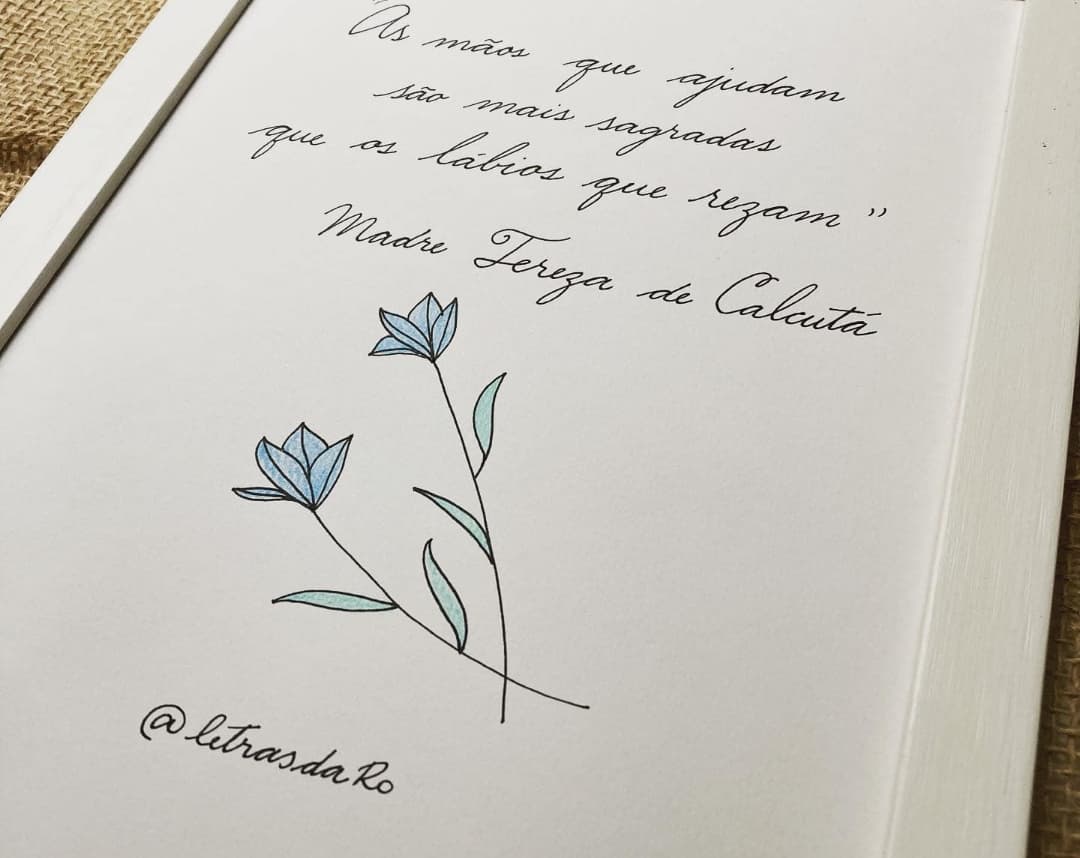 "As mãos que ajudam
são mais sagradas
que os lábios que rezam"
Madre Tereza de Calcutá
@letrasdaRo